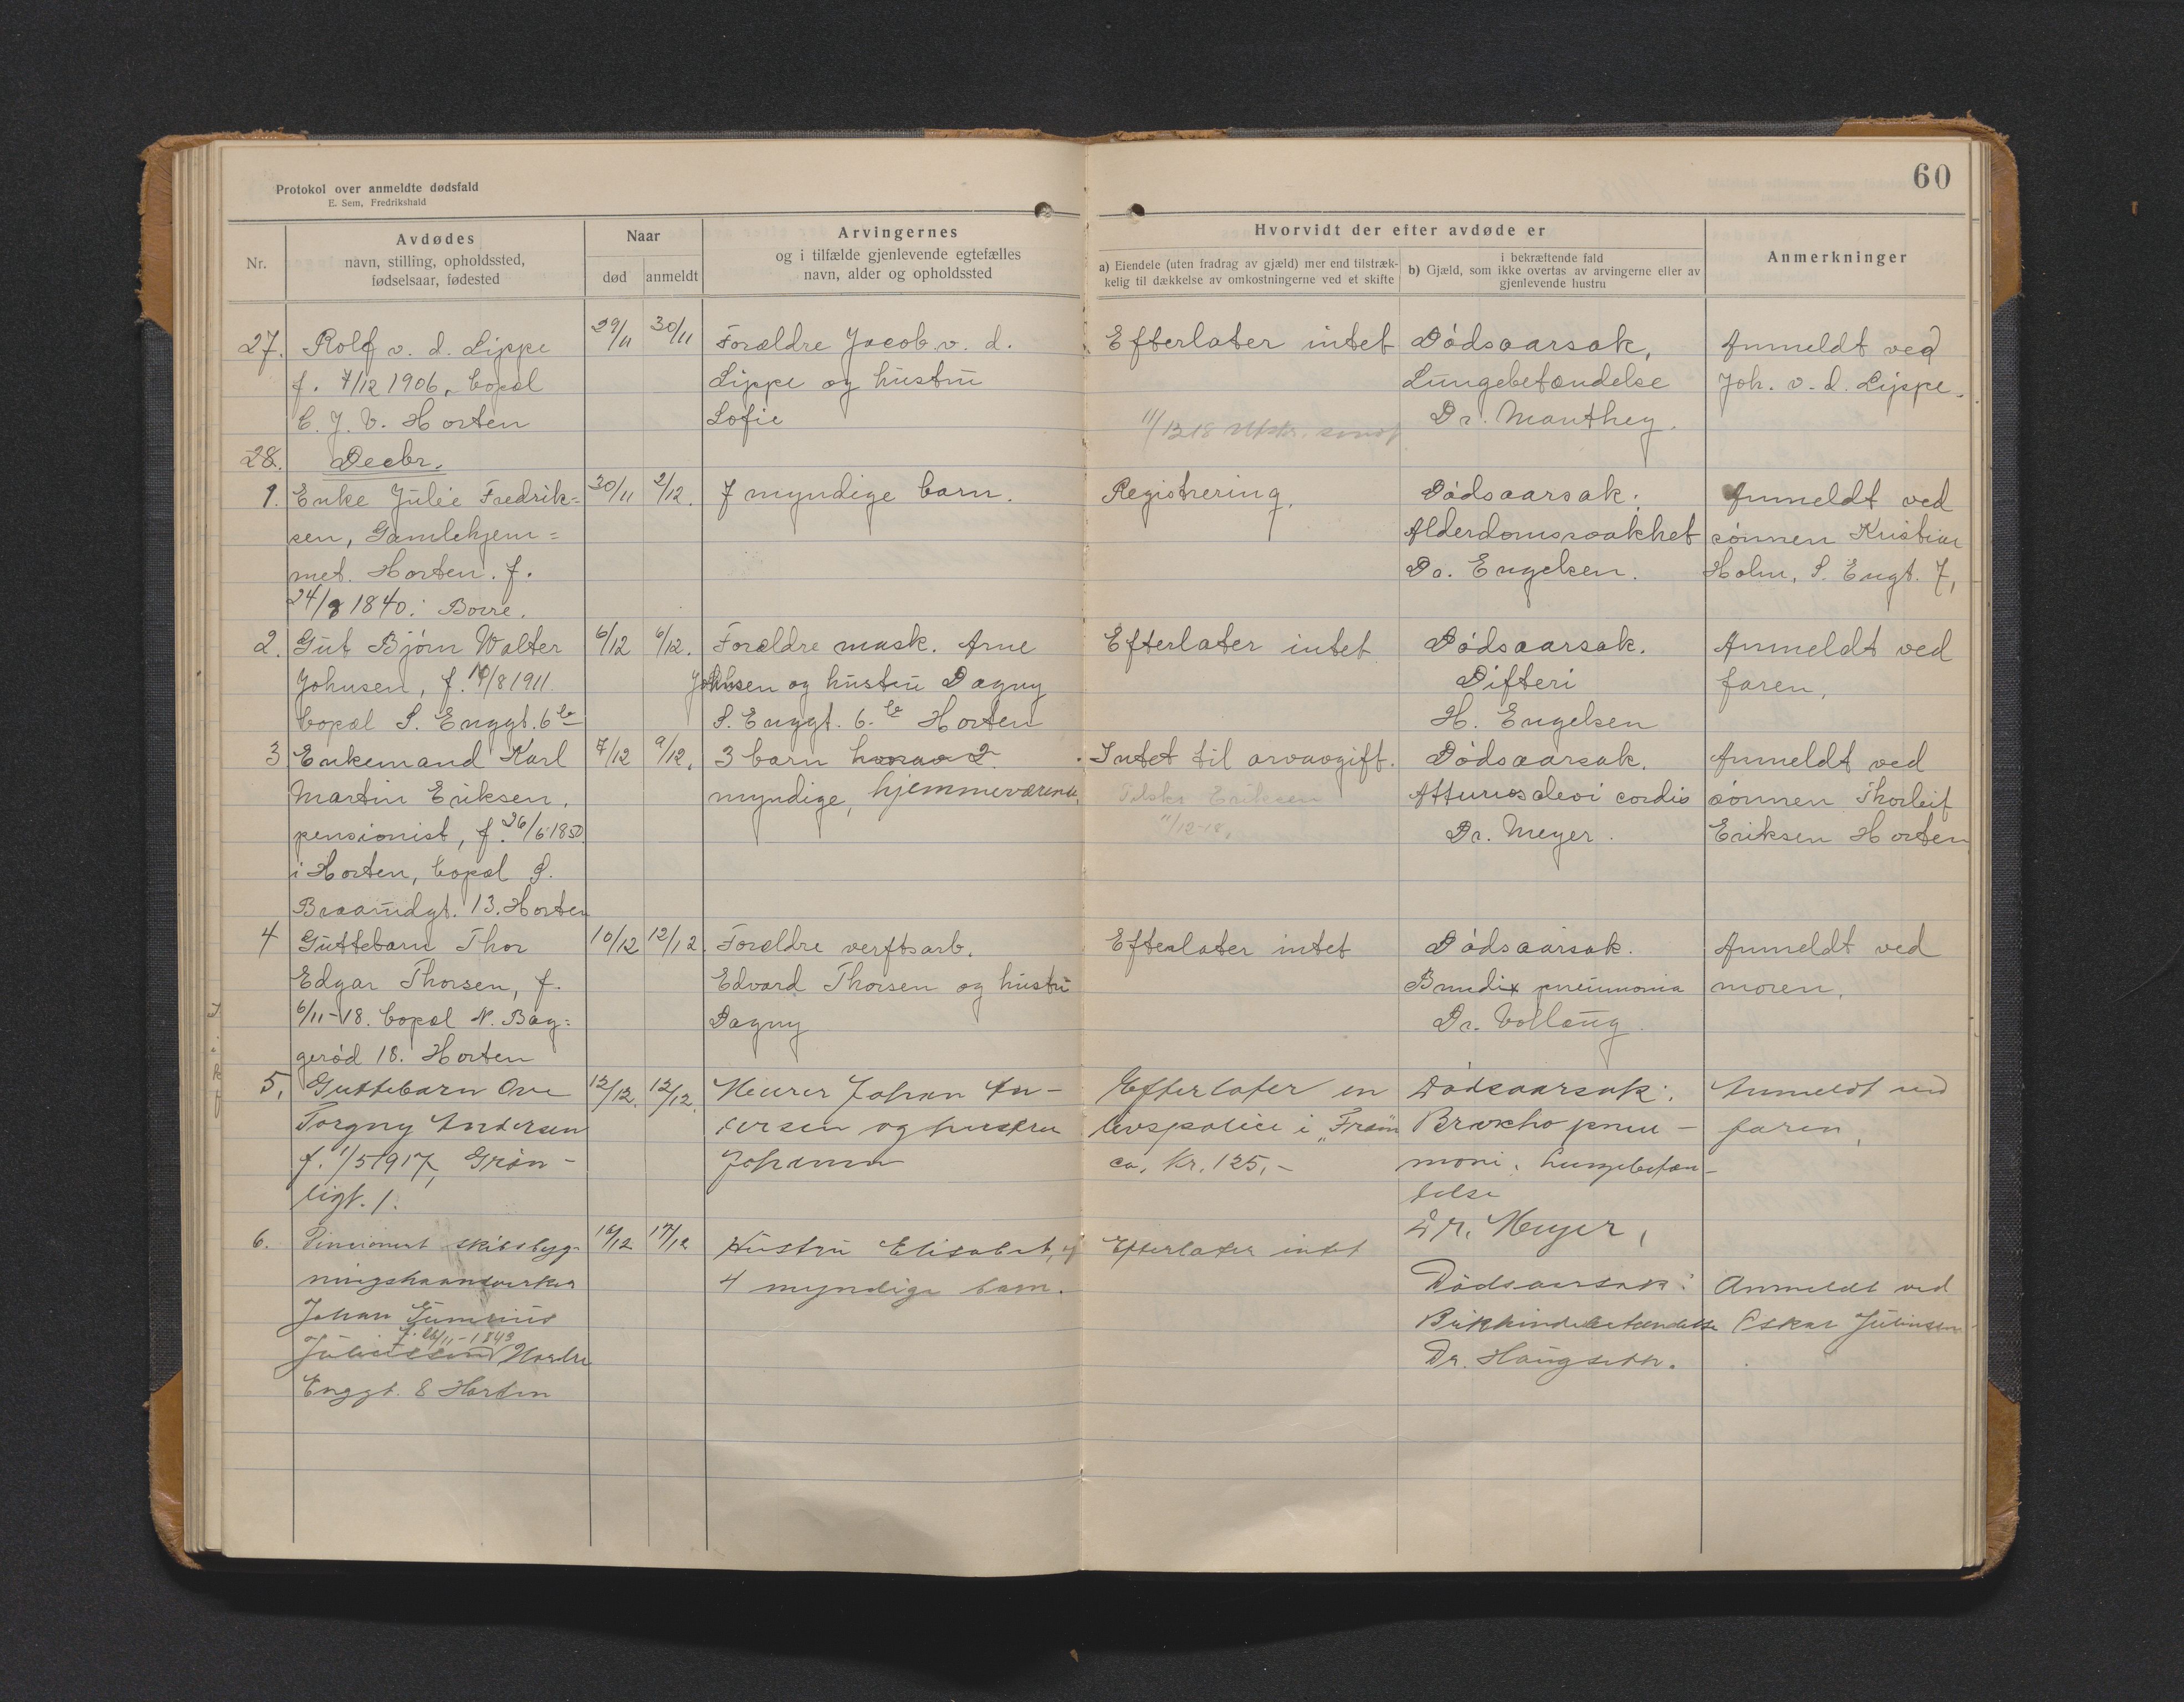 Protokol over anmeldte dødsfald
E. Sem, Fredrikshald
60
Nr.
Avdødes
navn, stilling, opholdssted,
fødselsaar, fødested
Naar
død
anmeldt
Arvingernes
og i tilfælde gjenlevende egtefælles
navn, alder og opholdssted
Hvorvidt der efter avdøde er
a) Eiendele (uten fradrag av gjæld) mer end tilstræk-
kelig til dækkelse av omkostningerne ved et skifte
i bekræftende fald
b) Gjæld, som ikke overtas av arvingerne eller av
gjenlevende hustru
Anmerkninger
27.
Rolf v. d. Lippe
f. 7/12 1906, bopæl
C. J. V. Horten
29/11
30/11
Forældre Jacob v. d.
Lippe og hustru
Sofie
Efterlater intet
11/12 18 Utskr. sendt
Dødsaarsak,
Lungebetændelse
Dr. Manthey.
Anmeldt ved
Joh. v. d. Lippe.
28.
Decbr.
1.
Enke Julie Fredrik=
sen, Gamlehjem=
met. Horten. f.
24/8 1840. Borre.
30/11
2/12.
7 myndige barn.
Registrering.
Dødsaarsak:
Alderdomssvakhet
Dr. Engelsen.
Anmeldt ved
sønnen Kristian
Holm, S. Engt. 7,
2.
Gut Bjørn Walter
Johnsen, f. 14/8 1911
bopæl S. Enggt. 6 b
6/12
6/12.
Forældre mask. Arne
Johnsen og hustru Dagny
S. Enggt. 6. b Horten
Efterlater intet
Dødsaarsak.
Difteri
H. Engelsen
Anmeldt ved
faren,
3
Enkemand Karl
Martin Eriksen,
pensionist, f. 26/6 1850
i Horten, bopæl S.
Braarudgt. 13. Horten
7/12
9/12.
3 barn hvorav 2
myndige, hjemmeværende.
Intet til arvavgift.
Eriksen
11/12-18,
Dødsaarsak.
cordis
Dr. Meyer.
Anmeldt ved
sønnen Thorleif
Eriksen Horten
4
Guttebarn Thor
Edgar Thorsen, f.
6/11-18. bopæl N. Bag=
gerød 18. Horten
10/12
12/12.
Forældre verftsarb.
Edvard Thorsen og hustru
Dagny
Efterlater intet
Dødsaarsak.
pneumonia
Dr. Vollaug.
Anmeldt ved
moren,
5.
Guttebarn Ove
Torgny Andersen
f. 1/5 1917, Grøn-
ligt. 1.
12/12.
12/12.
Murer Johan An-
dersen og hustru
Johanna
Efterlater en
livspolice i „Fram"
ca. Kr. 125,-
Dødsaarsak:
Broncho pneu-
moni. Lungebetæn-
delse
Dr. Meyer,
Anmeldt ved
faren,
6.
Pensionert skibsbyg-
ningshaandverker
Johan Gunerius
f. 26/11-1843
Juliussen Nordre
Enggt. 8 Horten
16/12
17/12
Hustru Elisabet, og
4 myndige barn.
Efterlater intet
Dødsaarsak:
Bukhindebetændelse
Dr. Haugseth.
Anmeldt ved
Oskar Juliussen